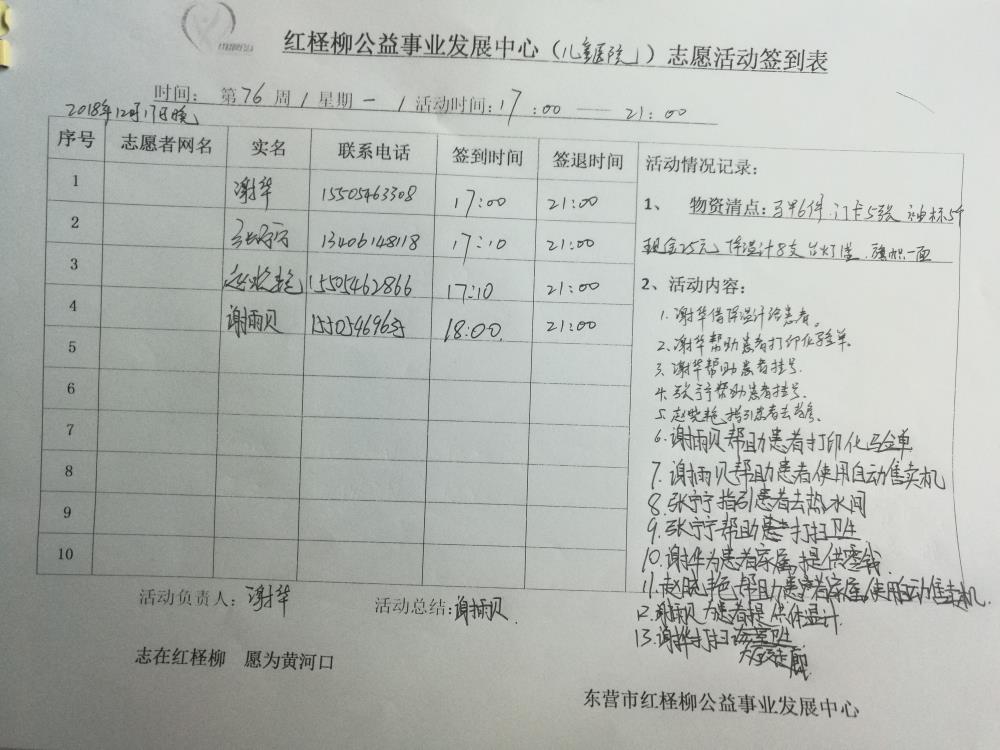 红柽柳公益事业发展中心（儿童医院）志愿活动签到表
时间：第76周/星期一/活动时间：17:00—21:00
2018年12月17日晚
序号 志愿者网名 实名 联系电话 签到时间 签退时间
1 谢华 15505463308 17:00 21:00
2 张宁宁 13406148118 17:10 21:00
3 赵晓艳 15505462866 17:10 21:00
4 谢雨贝 155054696 18:00 21:00
5
6
7
8
9
10
活动情况记录：
1、 物资清点：马甲6件 门卡5张 袖标5个
现金25元 体温计8支 台灯1盏 旗帜一面
2、活动内容：
1. 谢华借体温计给患者。
2. 谢华帮助患者打印化验单.
3. 谢华帮助患者挂号.
4. 张宁宁帮助患者挂号.
5. 赵晓艳指引患者去
6. 谢雨贝帮助患者打印化验单
7. 谢雨贝帮助患者使用自动售卖机
8. 张宁宁指引患者去热水间
9. 张宁宁帮助患者打扫卫生
10. 谢华为患者家属提供零钱
11. 赵晓艳帮助患者家属使用自动售卖机.
12. 谢雨贝为患者提供体温计.
13. 谢华打扫卫生
活动负责人：谢华 活动总结：谢雨贝
志在红柽柳 愿为黄河口
东营市红柽柳公益事业发展中心